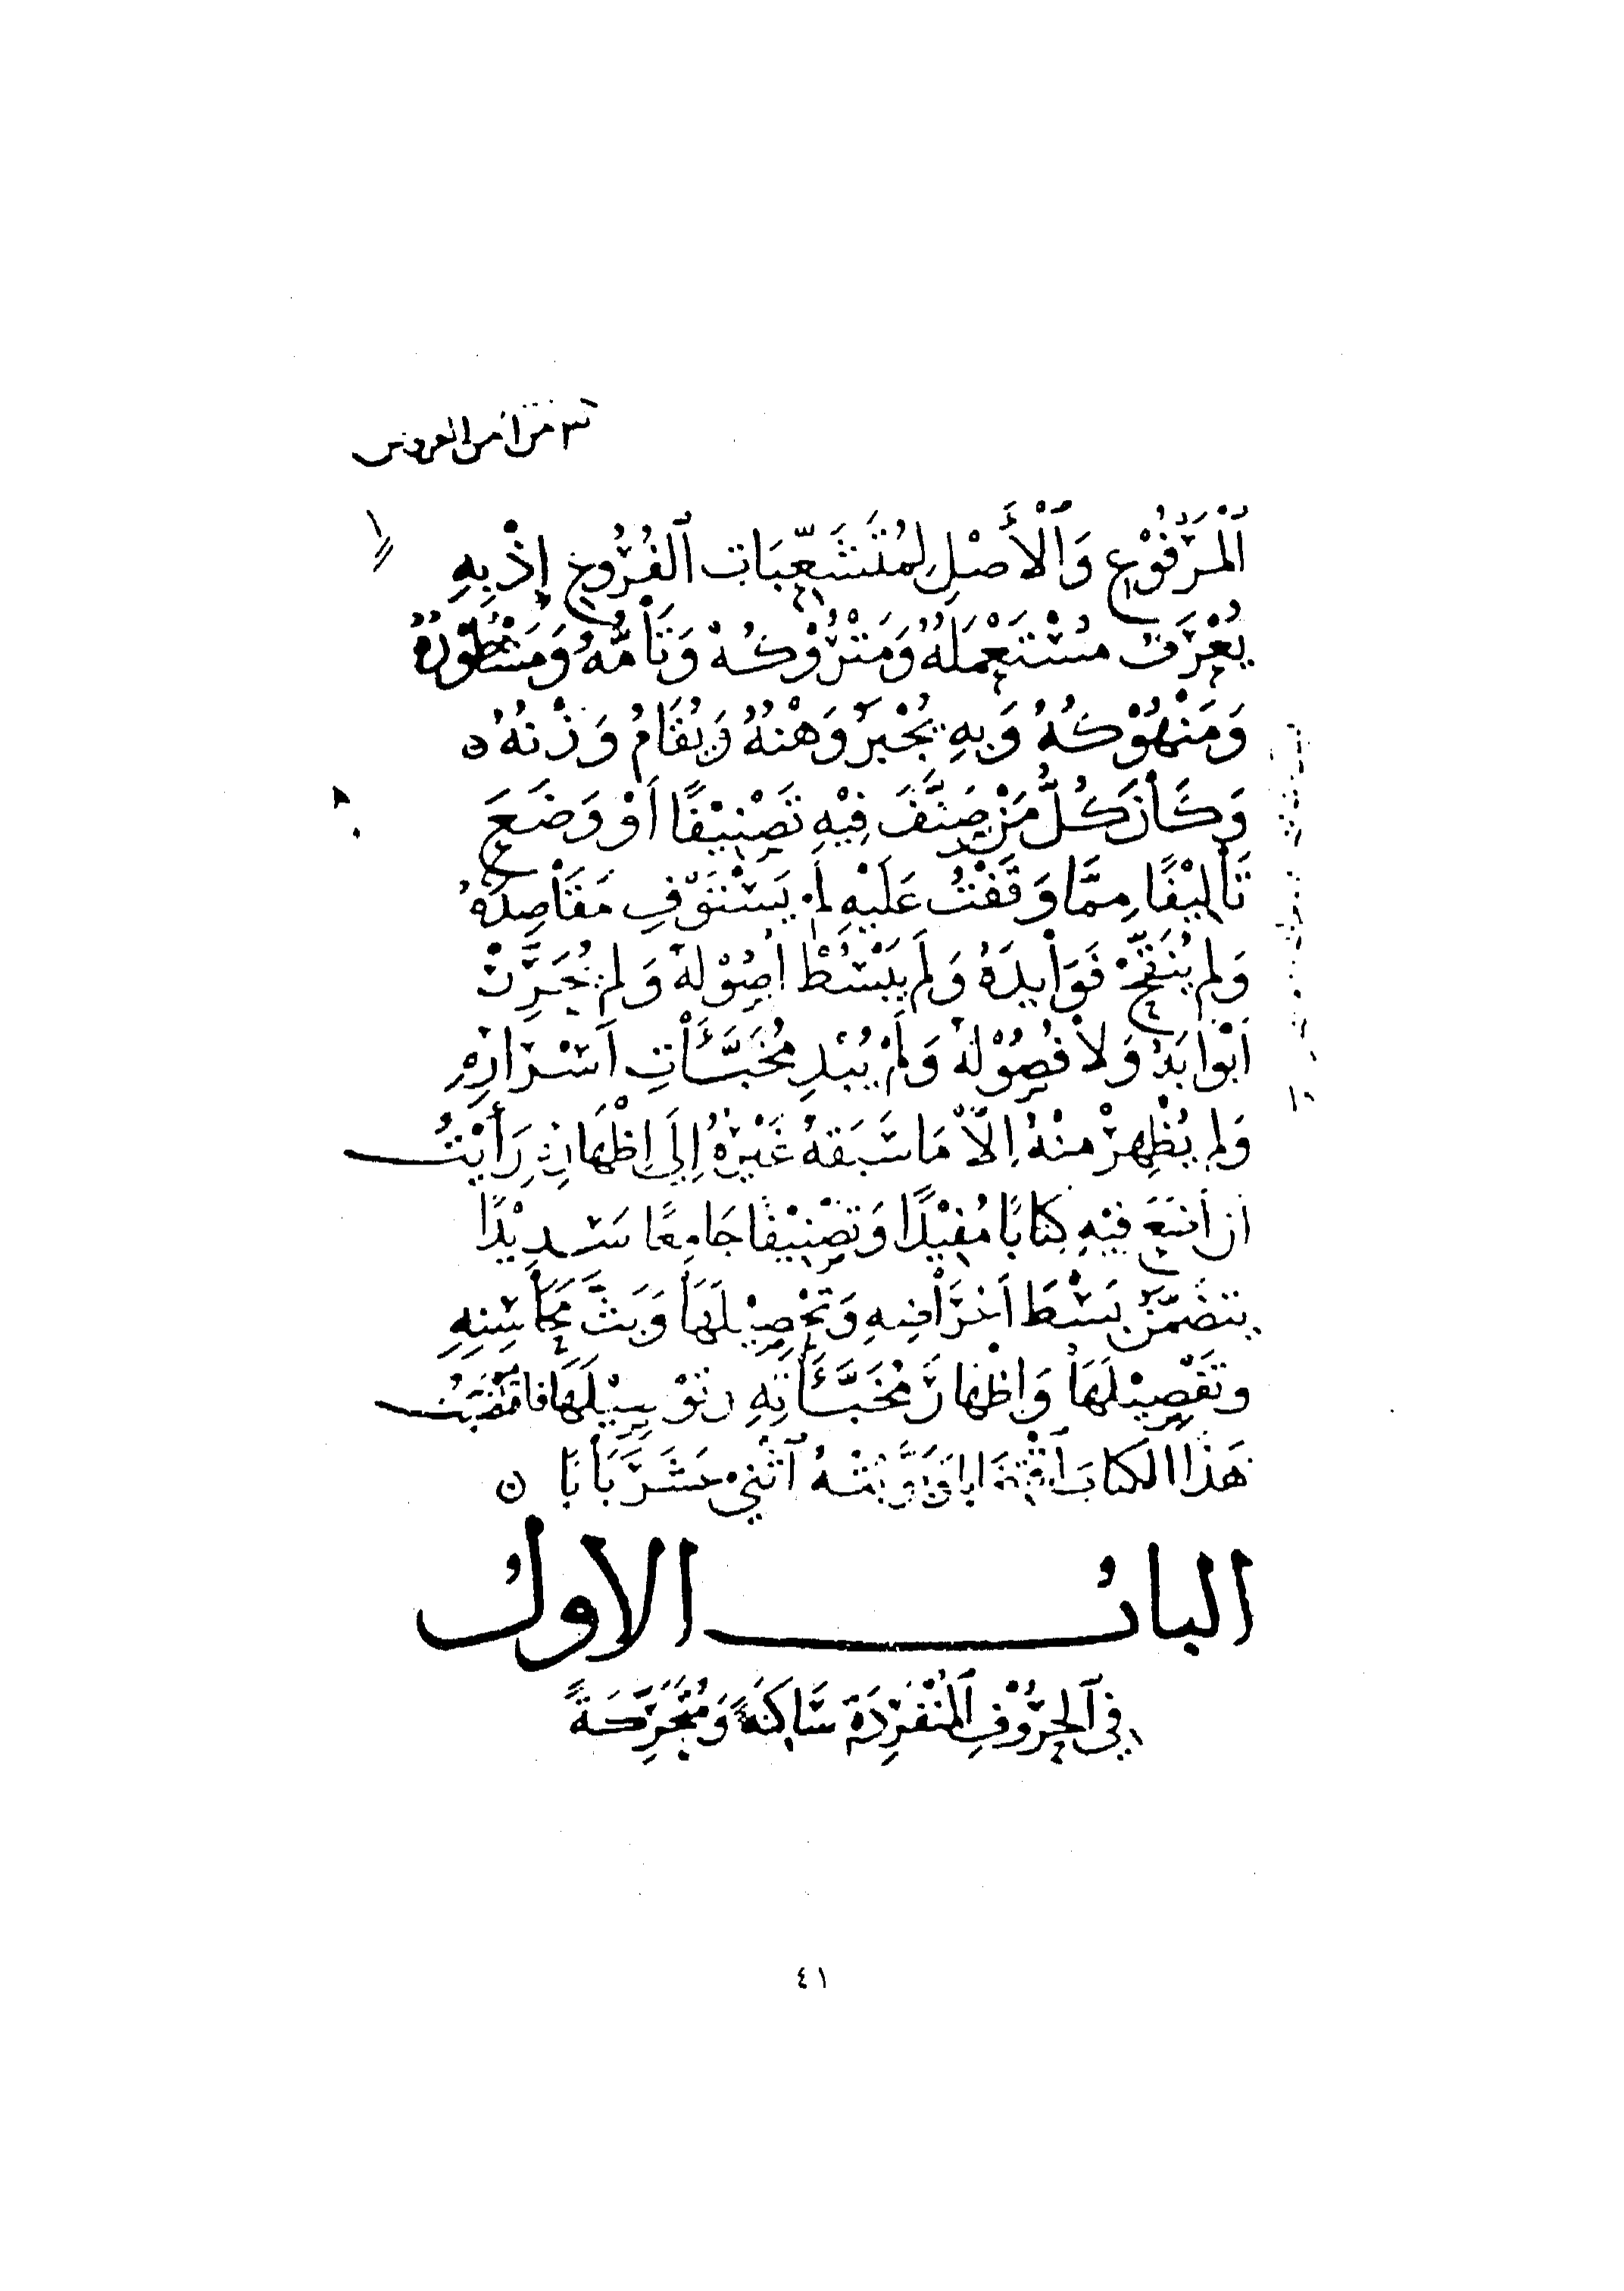 ٣ من امر العروض
ٱلْمَرْفُوْعِ وَٱلْأَصْلِ لِمُتَشَعِّبَاتِ ٱلفُرُوعِ إِذْ بِهِ
يُعْرَفُ مُسْتَعْمَلُهُ وَمَتْرُوْكُهُ وَتَامُّهُ وَمَشْطُوْرُهُ
وَمَنْهُوْكُهُ وَبِهِ يُجْبَرُ وَهْنُهُ وَيُقَامُ وَزْنُهُ ه
وَكَانَ كُلُّ مَنْ صَنَّفَ فِيْهِ تَصْنِيْفًا اَوْ وَضَعَ
تَأْلِيْفًا مِمَّا وَقَفْتُ عَلَيْهِ لَمْ يَسْتَوْفِ مَقَاصِدَهُ
وَلَمْ يُنَقِّحْ فَوَايِدَهُ وَلَمْ يَبْسُطْ اُصُوْلَهُ وَلَمْ يُحَرِّرْ
اَبْوَابَهُ وَلَا فُصُوْلَهُ وَلَمْ يُبْدِ مُخَبَّئَاتِ اَسْرَارِهِ
وَلَمْ يُظْهِرْ مِنْهُ اِلَّا مَا سَبَقَهُ غَيْرُهُ اِلَى اِظْهَارِهِ رَأَيْتُ
اَن اَضَعَ فِيْهِ كِتَابًا مُفِيْدًا وَتَصْنِيْفًا جَامِعًا سَدِيْدًا
يَتَضَمَّنُ بَسْطَ اَغْرَاضِهِ وَتَحْصِيْلَهَا وَبَثَّ مَحَاسِنِهِ
وَتَفْصِيْلَهَا وَاِظْهَارَ مُخَبَّئَاتِهِ وَتَسْبِيْلَهَا فَاقْتَضَبْتُ
هَذَا الكِتَابَ ٱقْتِضَابًا وَبَوَّبْتُهُ ٱثْنَيْ عَشَرَ بَابًا ن
البابُ الاولُ
فِي ٱلْحُرُوْفِ ٱلْمُنْفَرِدَةِ سَاكِنَةً وَمُتَحَرِّكَةً
٤١